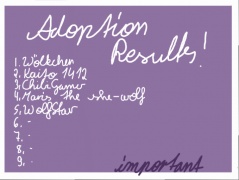 Adoption
Results!
1. Wölkchen
2. Kaito 1412
3. ChiliGamer
4. Maris the she-wolf
5. WolfStar
6. -
7. -
8. -
9. -
important